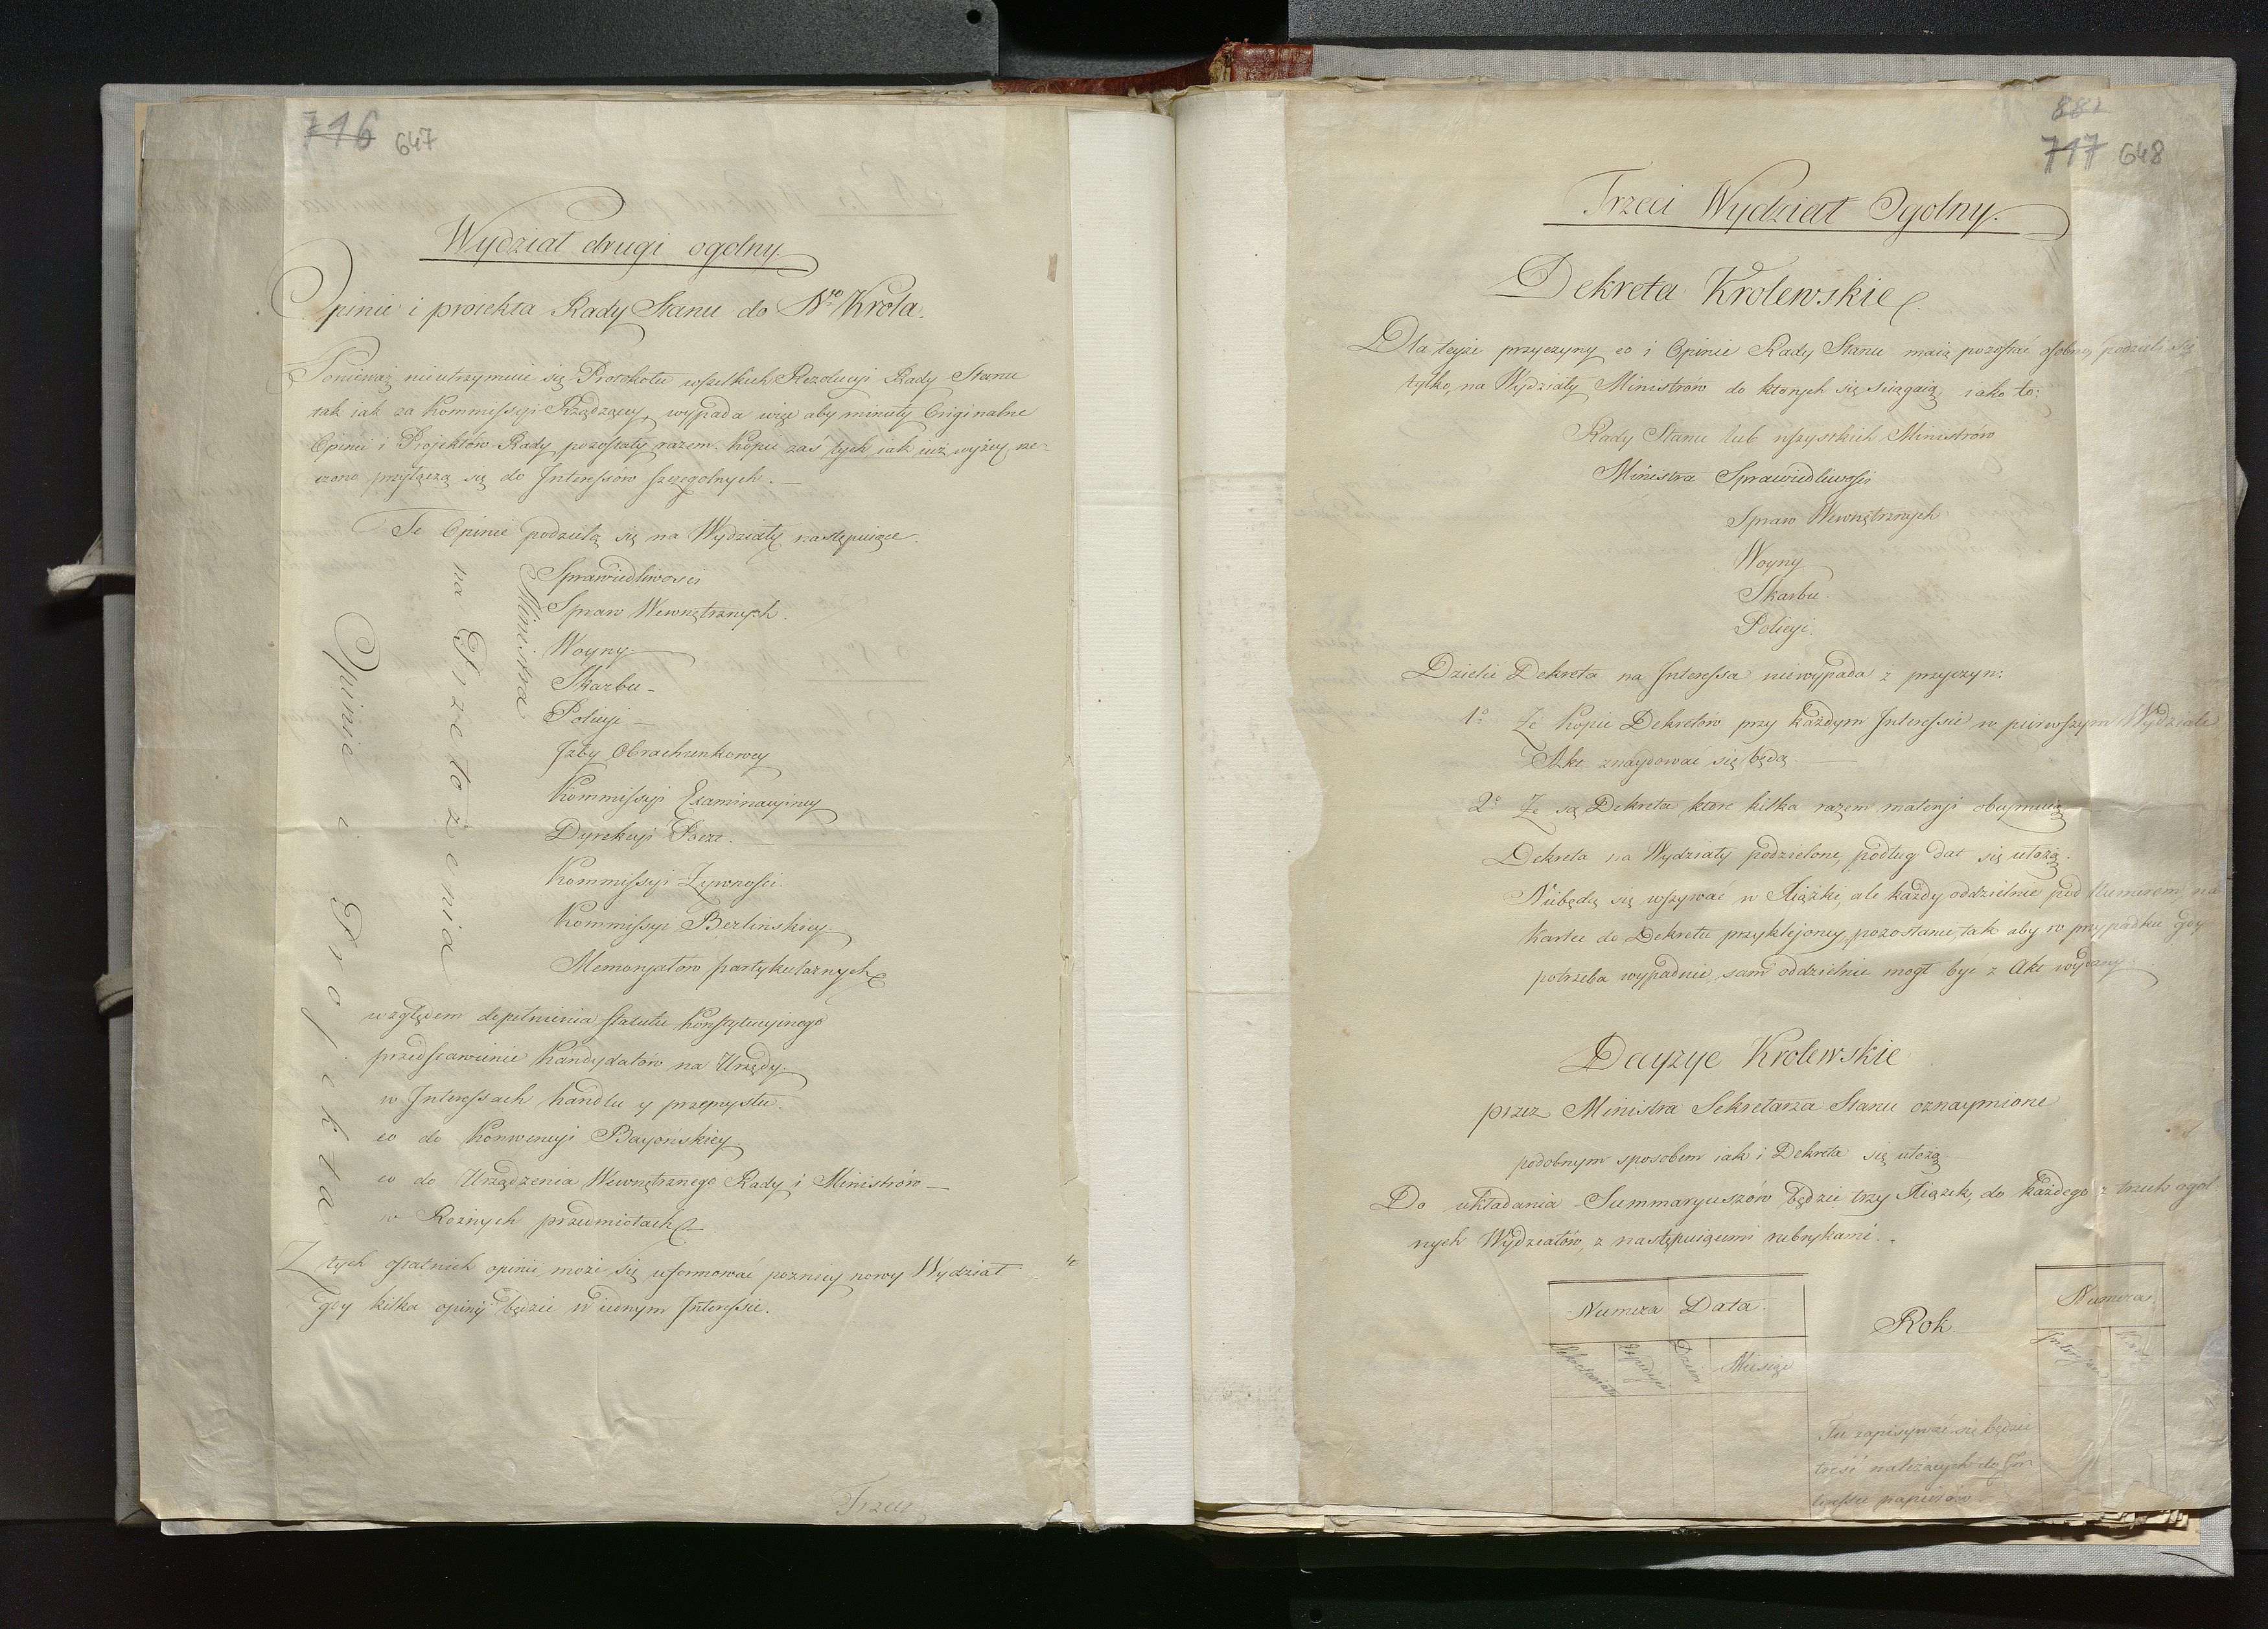 746 647
Wydział drugi ogolny.
Opinie i proiekta Rady Stanu do Nº Krola.
Ponieważ nieutrzymuie się Protokołu wszelkich Rezolucyi Rady Stanu
tak iak za Kommissyi Rządzącey, wypada więc aby minuty Originalne
Opinii i Projektów Rady pozostały razem. Kopie zaś tych iak iuż wyżey rze-
czono przyłączą się do Interessów szczegolnych. —
Te Opinie podzielą się na Wydziały następuiące.
Opinie i Projekta
na Przełożenia
Ministra
Sprawiedliwosci
Spraw Wewnętrznych.
Woyny. —
Skarbu —
Policyi —
Izby Obrachunkowey
Kommissyi Examinacyiney
Dyrekcyi Poczt. —
Kommissyi Zywnosci.
Kommissyi Berlinskiey
Memoryałow partykularnych
względem depełnienia statutu konstytucyinego
przedstawienie Kandydatów na Urzędy.
w Interessach handlu y przemysłu.
co do Konwencyi Bayońskiey
co do Urządzenia Wewnętrznego Rady i Ministrów —
w Roznych przedmiotach. —
Z tych ostatnich opinii może się uformować pozniey nowy Wydział
gdy kilka opinij będzie w iednym Interessie.
Trzeci
882
717 648
Trzeci Wydział Ogolny.
Dekreta Krolewskie.
Dla teyże przyczyny co i Opinie Rady Stanu maią pozostać osobno, podzieli się
tylko, na Wydziały Ministrów do ktorych się sciągaią iako to:
Rady Stanu lub wszystkich Ministrów
Ministra Sprawiedliwosci
Spraw Wewnętrznych
Woyny
Skarbu.
Policyi.
Dzielić Dekreta na Interessa niewypada z przyczyn:
1º Ze kopie Dekretów przy każdym Interessie w pierwszym Wydziale
Akt znaydować się będą. —
2º Ze są Dekreta ktore kilka razem materyi obeymuią
Dekreta na Wydziały podzielone, podług dat się ułożą.
Niebędą się wszywać w Xiążki, ale każdy oddzielnie pod Numerem, na
kartce do Dekretu przyklejoney, pozostanie, tak aby w przypadku gdy
potrzeba wypadnie, sam oddzielnie mogł być z Akt wydany.
Decyzye Krolewskie
przez Ministra Sekretarza Stanu oznaymione
podobnym sposobem iak i Dekreta się ułożą.
Do układania Summaryuszów będzie trzy Xiążek, do każdego z trzech ogol
nych Wydziałów, z następuiącemi rubrykami. —
Numera Data. Rok. Numera
Sekretariatu Expedycyi Dzien Miesiąc Interessu
Tu zapisywać się będzie
treść należących do In
teressu papierów